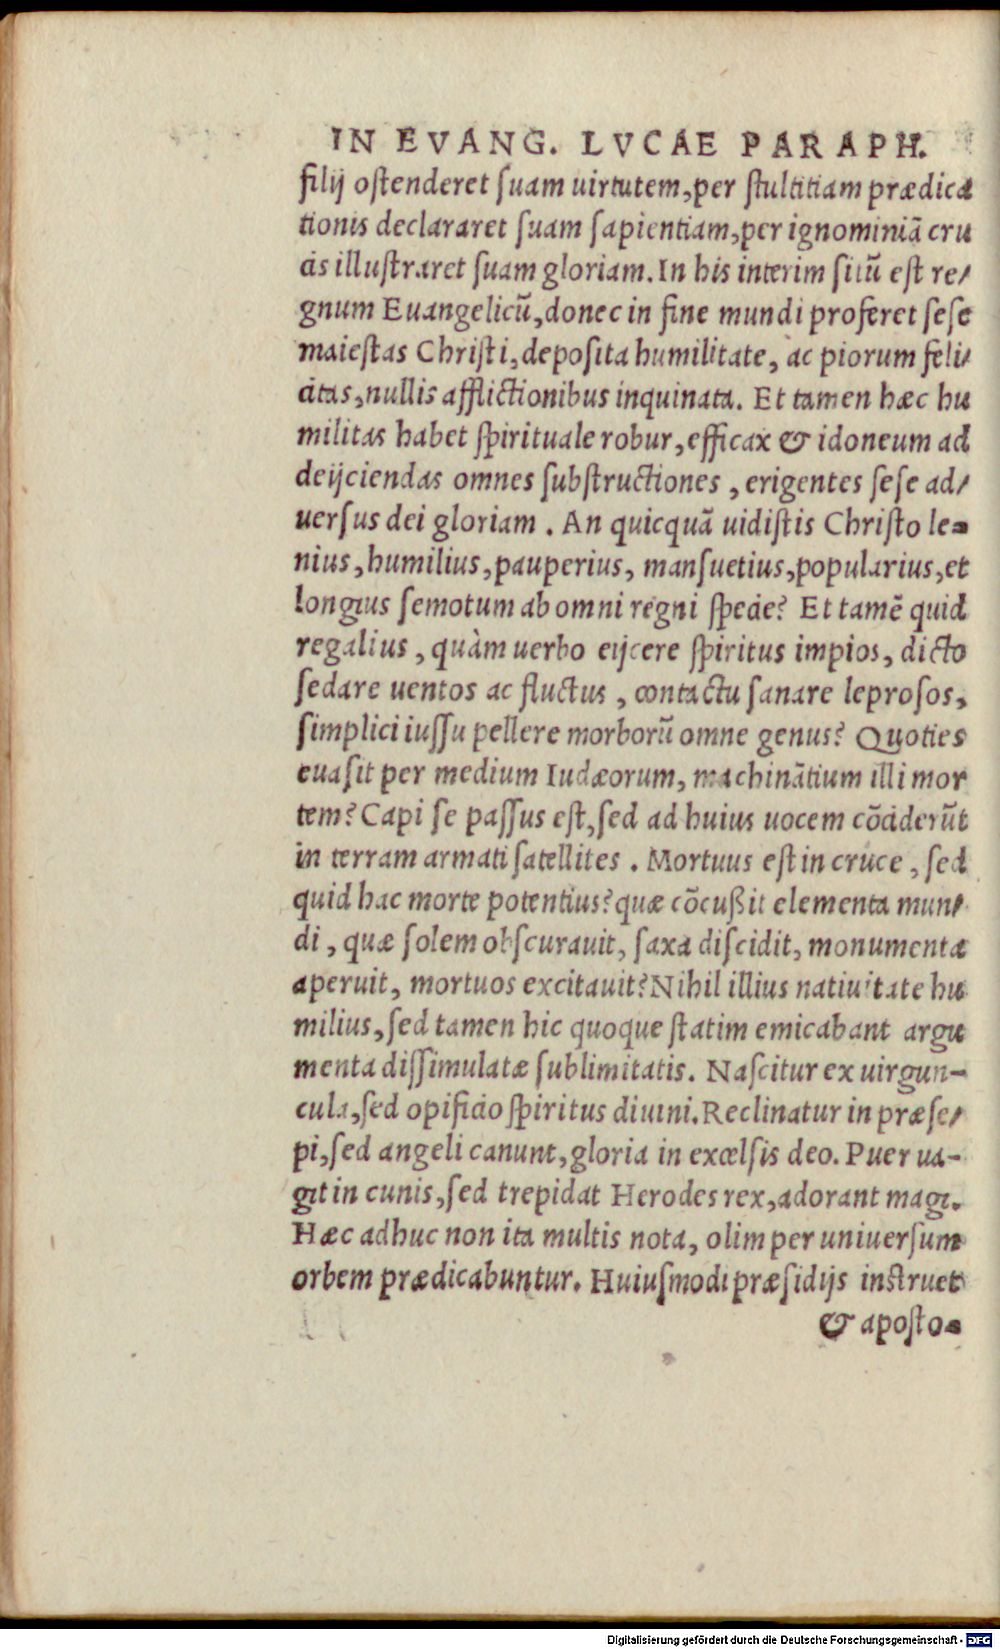 IN EVANG. LVCAE PARAPH.
filij oſtenderet ſuam uirtutem, per ſtultitiam prædica
tionis declararet ſuam ſapientiam, per ignominiā cru
cis illuſtraret ſuam gloriam. In his interim ſitū eſt re⸗
gnum Euangelicū, donec in fine mundi proferet ſeſe
maieſtas Chriſti, depoſita humilitate, ac piorum feli⸗
citas, nullis afflictionibus inquinata. Et tamen hæc hu
militas habet ſpirituale robur, efficax & idoneum ad
deijciendas omnes ſubſtructiones, erigentes ſeſe ad⸗
uerſus dei gloriam. An quicquā uidiſtis Chriſto le⸗
nius, humilius, pauperius, manſuetius, popularius, et
longius ſemotum ab omni regni ſpecie? Et tamē quid
regalius, quàm uerbo eijcere ſpiritus impios, dicto
ſedare uentos ac fluctus, contactu ſanare leproſos,
ſimplici iuſſu pellere morborū omne genus? Quoties
euaſit per medium Iudæorum, machinātium illi mor
tem? Capi ſe paſſus eſt, ſed ad huius uocem cōciderūt
in terram armati ſatellites. Mortuus eſt in cruce, ſed
quid hac morte potentius? quæ cōcußit elementa mun⸗
di, quæ ſolem obſcurauit, ſaxa diſcidit, monumenta
aperuit, mortuos excitauit? Nihil illius natiuitate hu
milius, ſed tamen hic quoque ſtatim emicabant argu
menta diſſimulatæ ſublimitatis. Naſcitur ex uirgun-
cula, ſed opificio ſpiritus diuini. Reclinatur in præſe⸗
pi, ſed angeli canunt, gloria in excelſis deo. Puer ua-
git in cunis, ſed trepidat Herodes rex, adorant magi.
Hæc adhuc non ita multis nota, olim per uniuerſum
orbem prædicabuntur. Huiuſmodi præſidijs inſtruet
& apoſto⸗
Digitalisierung gefördert durch die Deutsche Forschungsgemeinschaft - DFG